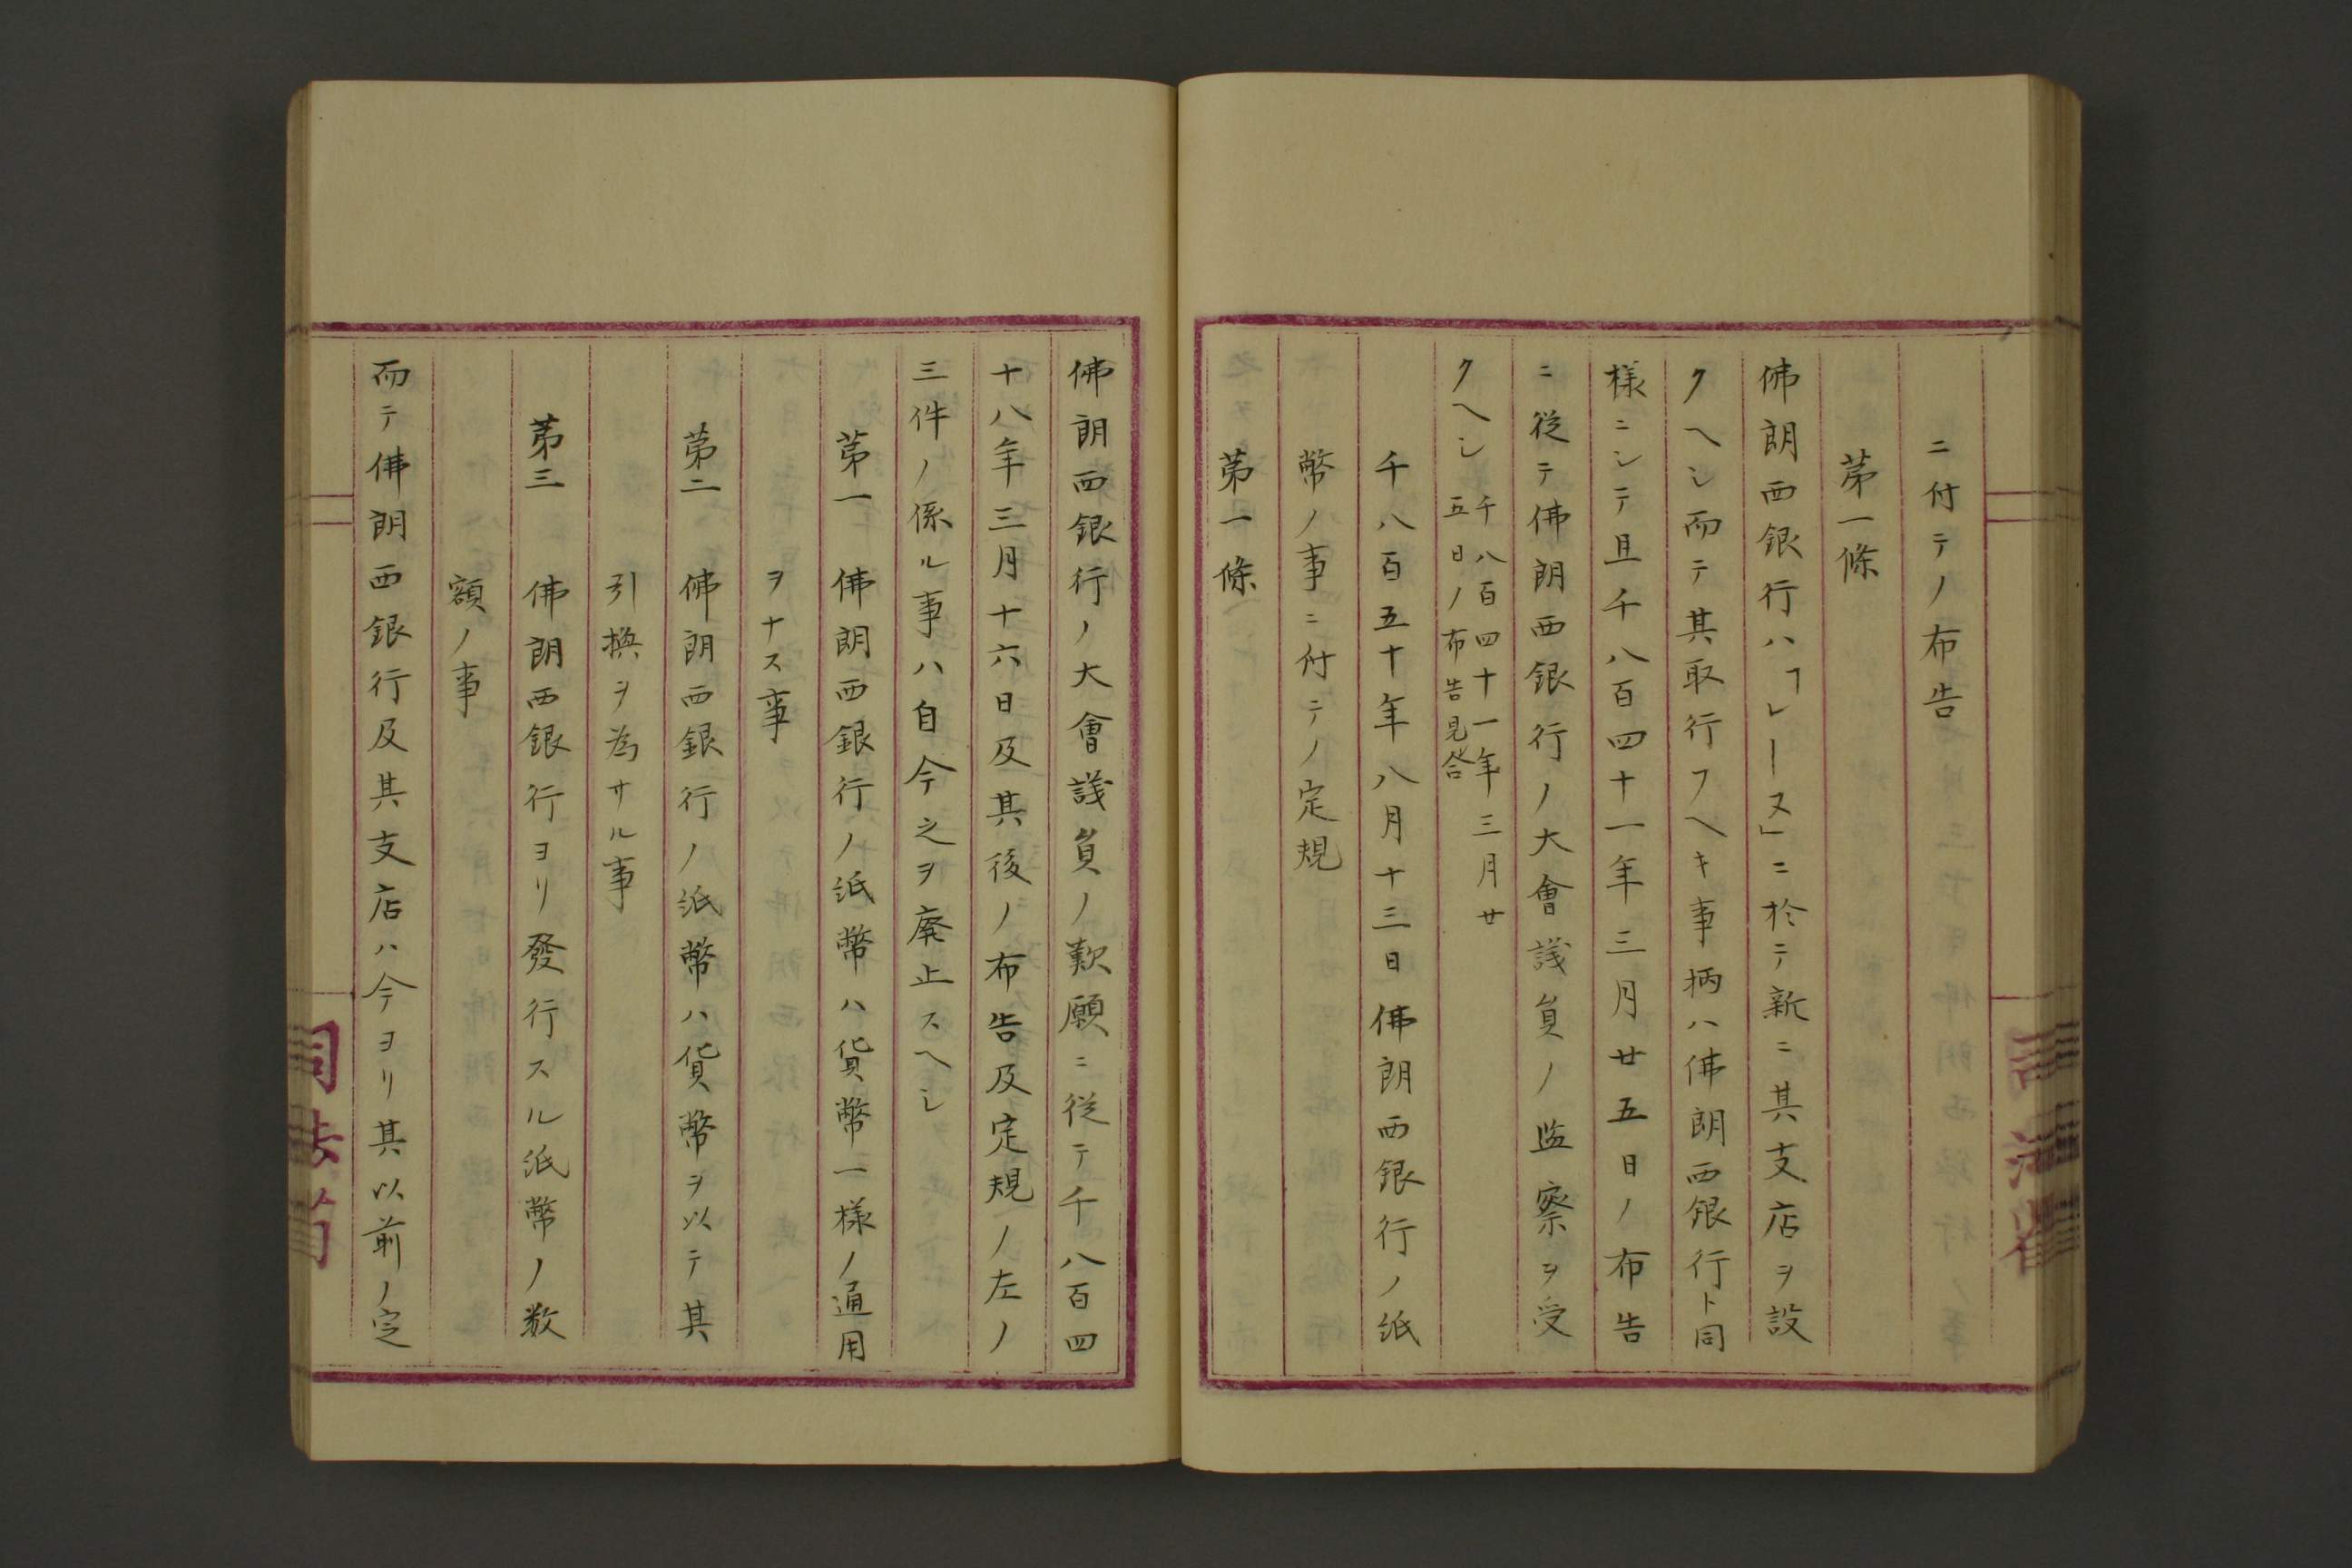 ニ付テノ布告
第一條
佛朗西銀行ハ「レーヌ」ニ於テ新ニ其支店ヲ設
クヘシ而テ其取行フヘキ事柄ハ佛朗西銀行ト同
様ニシテ且千八百四十一年三月廿五日ノ布告
ニ従テ佛朗西銀行ノ大會議負ノ监察ヲ受
クヘシ
千八百四十一年三月廿
五日ノ布告見合
千八百五十年八月十三日佛朗西銀行ノ紙
幣ノ事ニ付テノ定規
第一條
佛朗西銀行ノ大會議負ノ歎願ニ従テ千八百四
十八年三月十六日及其後ノ布告及定規ノ左ノ
三件ノ係ル事ハ自今之ヲ廃止スヘシ
第一 佛朗西銀行ノ紙幣ハ貨幣一樣ノ通用
ヲナス事
第二 佛朗西銀行ノ紙幣ハ貨幣ヲ以テ其
引換ヲ為サル事
第三 佛朗西銀行ヨリ發行スル紙幣ノ数
額ノ事
而テ佛朗西銀行及其支店ハ今ヨリ其以前ノ定
司法省